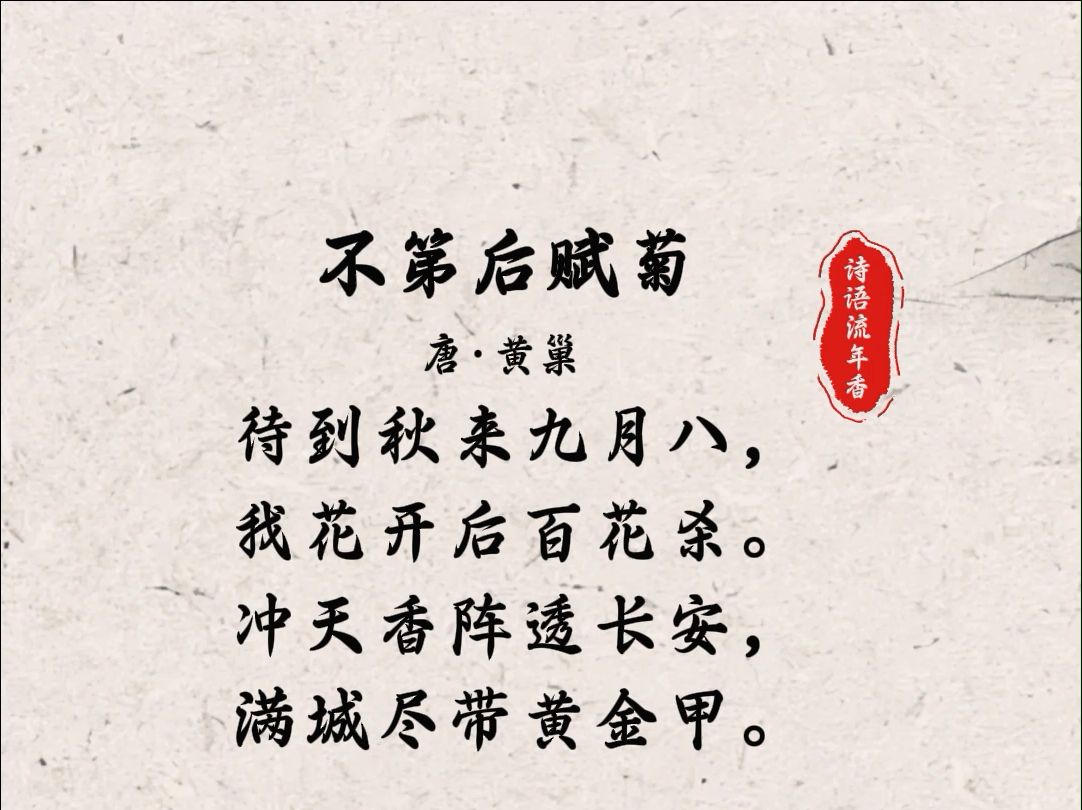 不第后赋菊
唐·黄巢
待到秋来九月八，
我花开后百花杀。
冲天香阵透长安，
满城尽带黄金甲。
诗语流年香